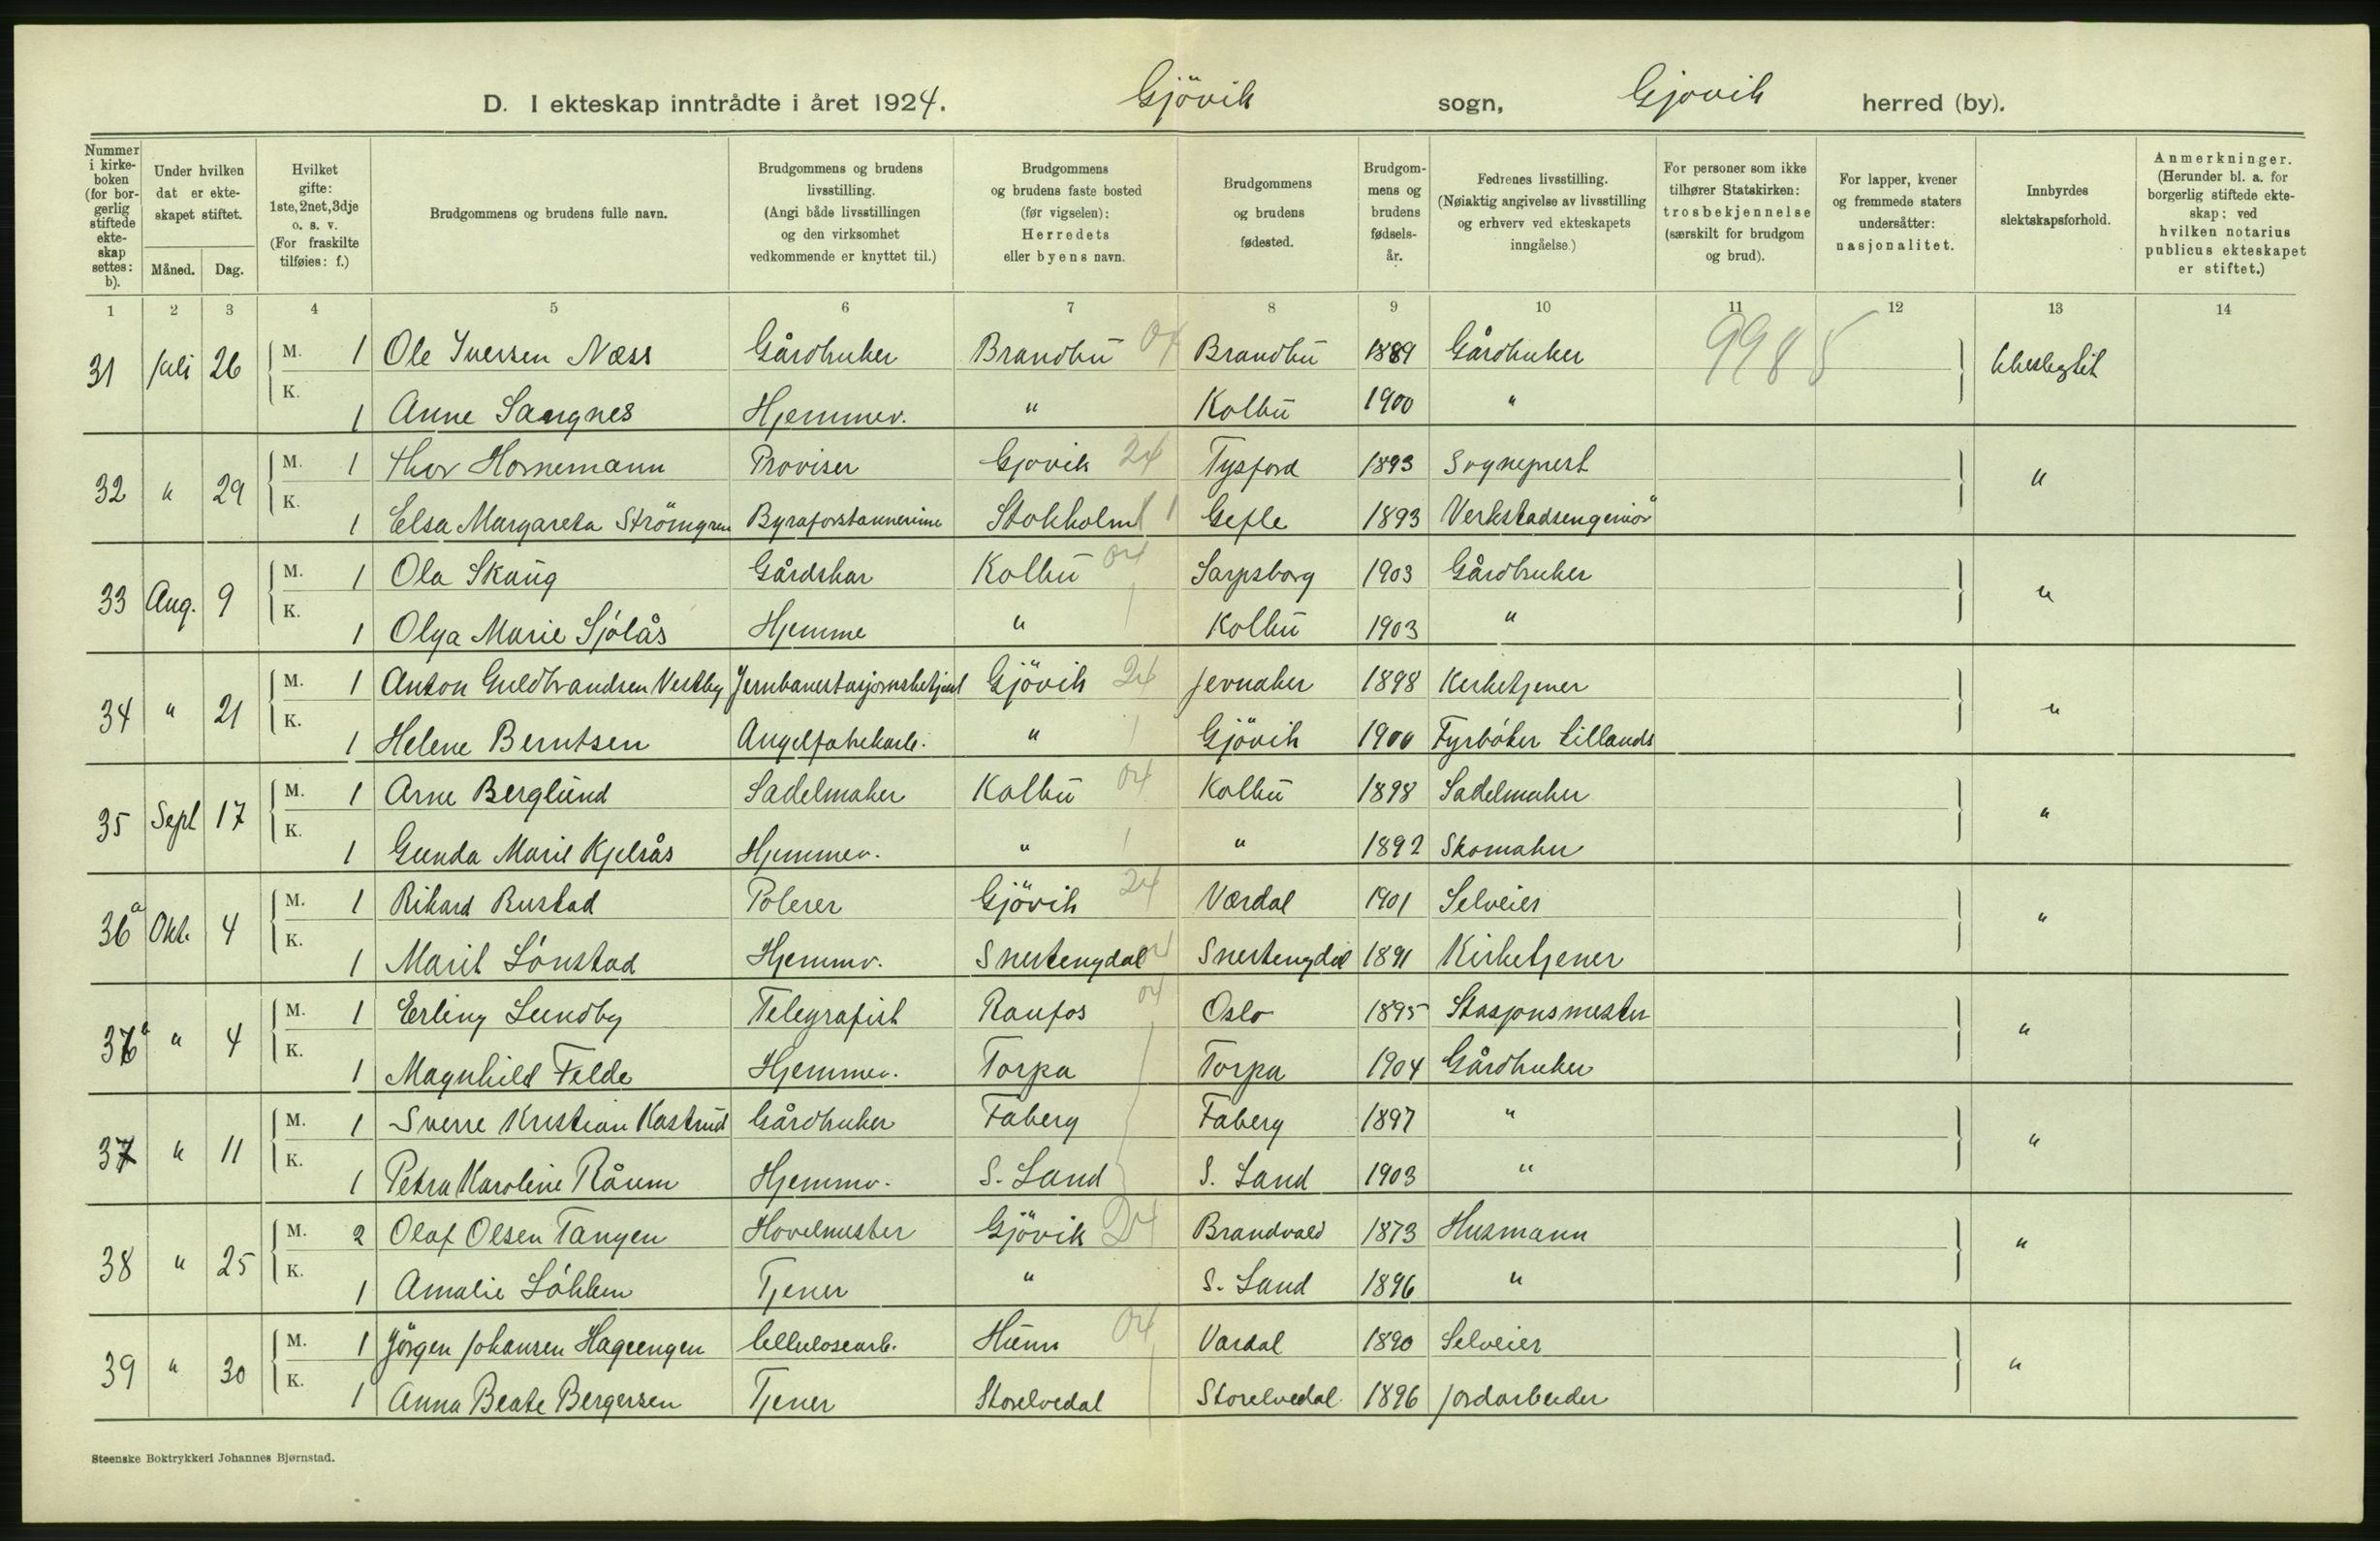 D. I ekteskap inntrådte i året 1924. Gjövik sogn, Gjovik herred (by).
Nummer i kirkeboken (for borgerlig stiftede ekteskap settes: b).
Under hvilken dat er ekteskapet stiftet.
Måned. Dag.
Hvilket gifte: 1ste, 2net, 3dje o. s. v. (For fraskilte tilføies: f.)
Brudgommens og brudens fulle navn.
Brudgommens og brudens livsstilling. (Angi både livsstillingen og den virksomhet vedkommende er knyttet til.)
Brudgommens og brudens faste bosted (før vigselen): Herredets eller byens navn.
Brudgommens og brudens fødested.
Brudgommens og brudens fødselsår.
Fedrenes livsstilling. (Nøiaktig angivelse av livsstilling og erhverv ved ekteskapets inngåelse.)
For personer som ikke tilhører Statskirken: trosbekjennelse (særskilt for brudgom og brud).
For lapper, kvener og fremmede staters undersåtter: nasjonalitet.
Innbyrdes slektskapsforhold.
Anmerkninger. (Herunder bl. a. for borgerlig stiftede ekteskap: ved hvilken notarius publicus ekteskapet er stiftet.)
1 2 3 4 5 6 7 8 9 10 11 12 13 14
31 Juli 26 M. 1 Ole Iversen Næss Gårdbruker Brandbu 04 Brandbu 1889 Gårdbruker 9985
K. 1 Anne Sangnes Hjemmev. " Kolbu 1900 "
32 " 29 M. 1 Thor Hornemann Proviser Gjovik 24 Tysfjord 1893 Sogneprest "
K. 1 Elsa Margareta Strömgren Byraforstannerinne Stokholm 1 Gefle 1893 Verkstadsengeniör
33 Aug. 9 M. 1 Ola Skaug Gårdskar Kolbu 04 Sarpsborg 1903 Gårdbruker "
K. 1 Olga Marie Sjólås Hjemme " Kolbu 1903 "
34 " 21 M. 1 Anton Guldbrandsen Vestby Jernbanestasjonsbetjent Gjövik 24 Jevnaker 1898 Kerketjener "
K. 1 Helene Berntsen Angelfabrikarb. " Gjövik 1900 Fyrbóter tillands
35 Sept 17 M. 1 Arne Berglund Sadelmaker Kolbu 04 Kolbu 1898 Sadelmaker "
K. 1 Gunda Marie Kjelsås Hjemmev. " " 1892 Skomaker
36a Okt. 4 M. 1 Rikard Rustad Polerer Gjövik 24 Værdal 1901 Selveier "
K. 1 Marit Lónstad Hjemmv. Snertengdal Snertengdal 1891 Kirketjener
36 " 4 M. 1 Erling Lundby Telegrafist Raufos 04 Oslo 1895 Stasjonsmester "
K. 1 Magnhild Felde Hjemmev. Torpa Torpa 1904 Gårdbruker
37 " 11 M. 1 Sverre Kristian Kastrud Gårdbruker Faberg Faberg 1897 " "
K. 1 Petra Karoline Råum Hjemmv. S. Land S. Land 1903 "
38 " 25 M. 2 Olaf Olsen Tangen Hovelmester Gjövik 24 Brandvald 1873 Husmann "
K. 1 Amalie Lókken Tjener " S. Land 1896 "
39 " 30 M. 1 Jörgen Johansen Hageengen Cellulosearb. Hunn 04 Vardal 1890 Selveier "
K. 1 Anna Beate Bergersen Tjener Storelvedal Storelvedal 1896 Jordarbeider
Steenske Boktrykkeri Johannes Bjørnstad.